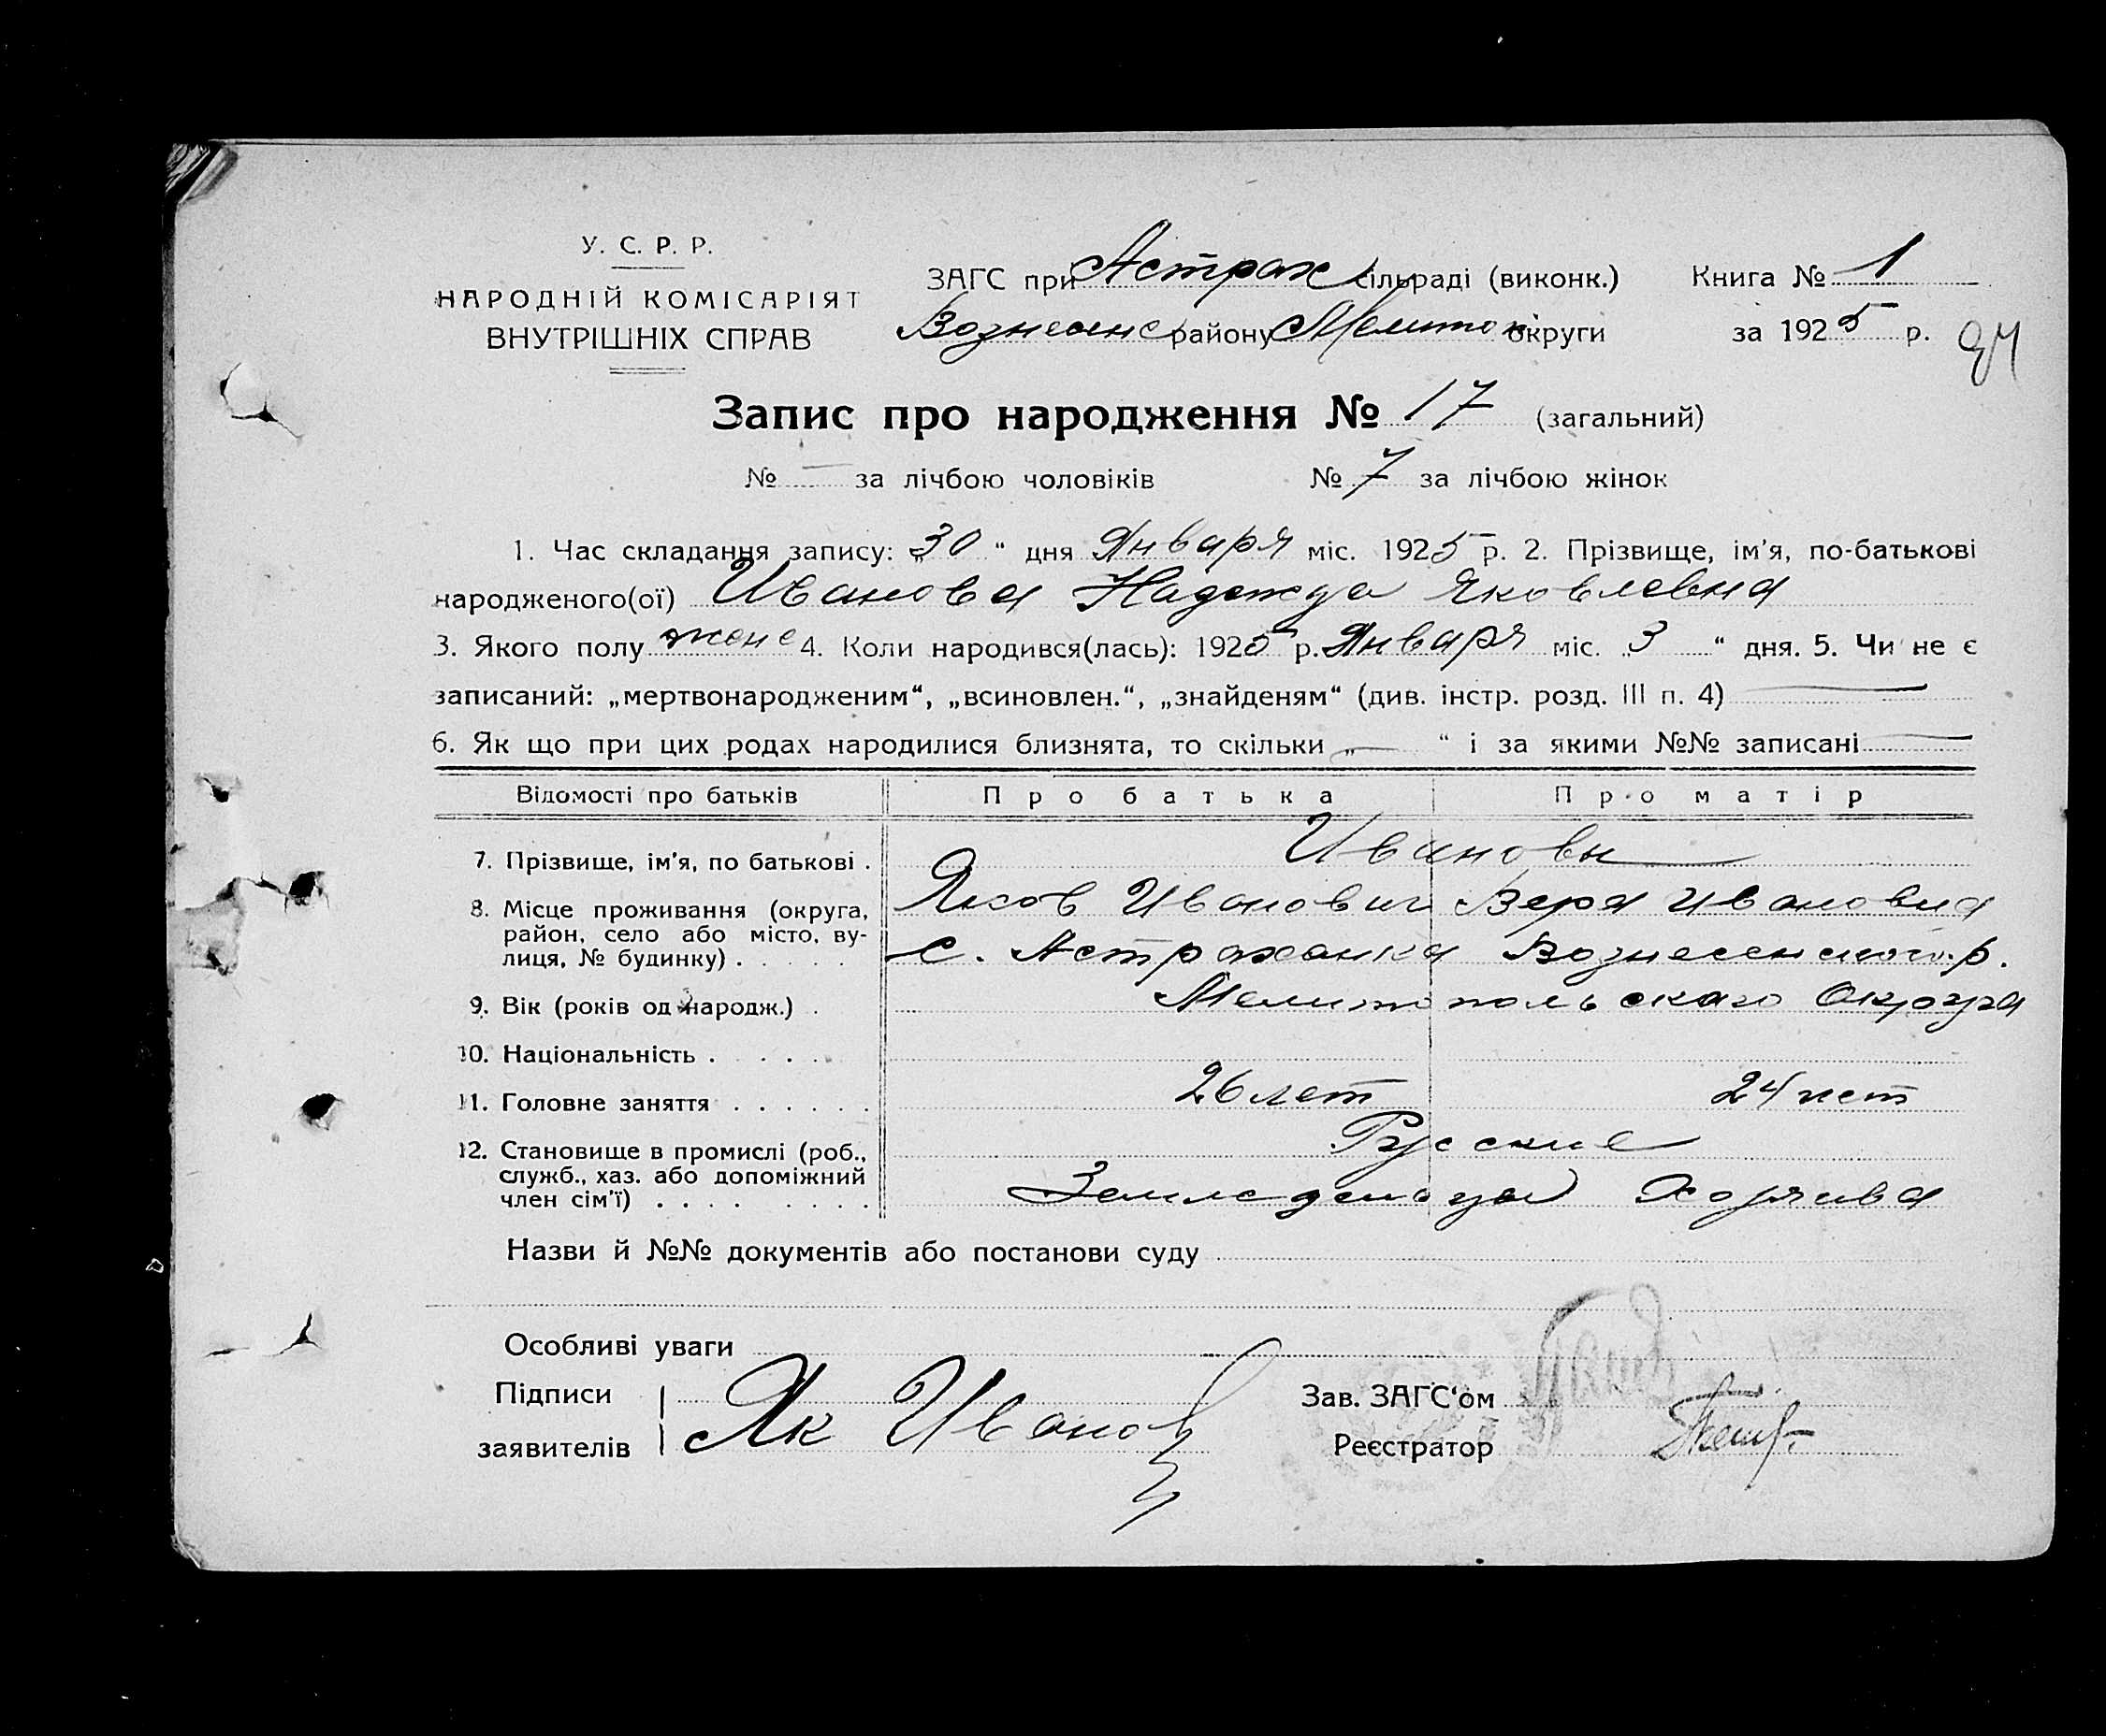 У. С. Р. Р.
НАРОДНІЙ КОМІСАРІЯТ
ВНУТРІШНІХ СПРАВ
ЗАГС при Астрах сільраді (виконк.) Книга № 1
Вознесенс району Мелитоп округи за 1925 р.
Запис про народження № 17 (загальний)
№ — за лічбою чоловіків № 7 за лічбою жінок
1. Час складання запису: „30“ дня Января міс. 1925 р. 2. Прізвище, ім'я, по-батькові
народженого(ої) Иванова Надежда Яковлевна
3. Якого полу женс 4. Коли народився(лась): 1925 р. Января міс. „3“ дня. 5. Чи не є
записаний: „мертвонародженим“, „всиновлен.“, „знайденям“ (див. інстр. розд. III п. 4) —
6. Як що при цих родах народилися близнята, то скільки „—“ і за якими №№ записані —
Відомості про батьків Про батька Про матір
7. Прізвище, ім'я, по батькові . Ивановы
Яков Иванович Вера Ивановна
8. Місце проживання (округа,
район, село або місто, ву-
лиця, № будинку) . . . . . с. Астраханка Вознесенского р.
9. Вік (років од народж.) . Мелитопольскаго Округа
10. Національність . . . . .
11. Головне заняття . . . . . . 26 лет 24 лет
12. Становище в промислі (роб.,
служб., хаз. або допоміжний
член сім'ї) . . . . . . . . . Русские
Земледельцы Хозяива
Назви й №№ документів або постанови суду
Особливі уваги
Підписи
заявителів Як Иванов
Зав. ЗАГС'ом
Реєстратор